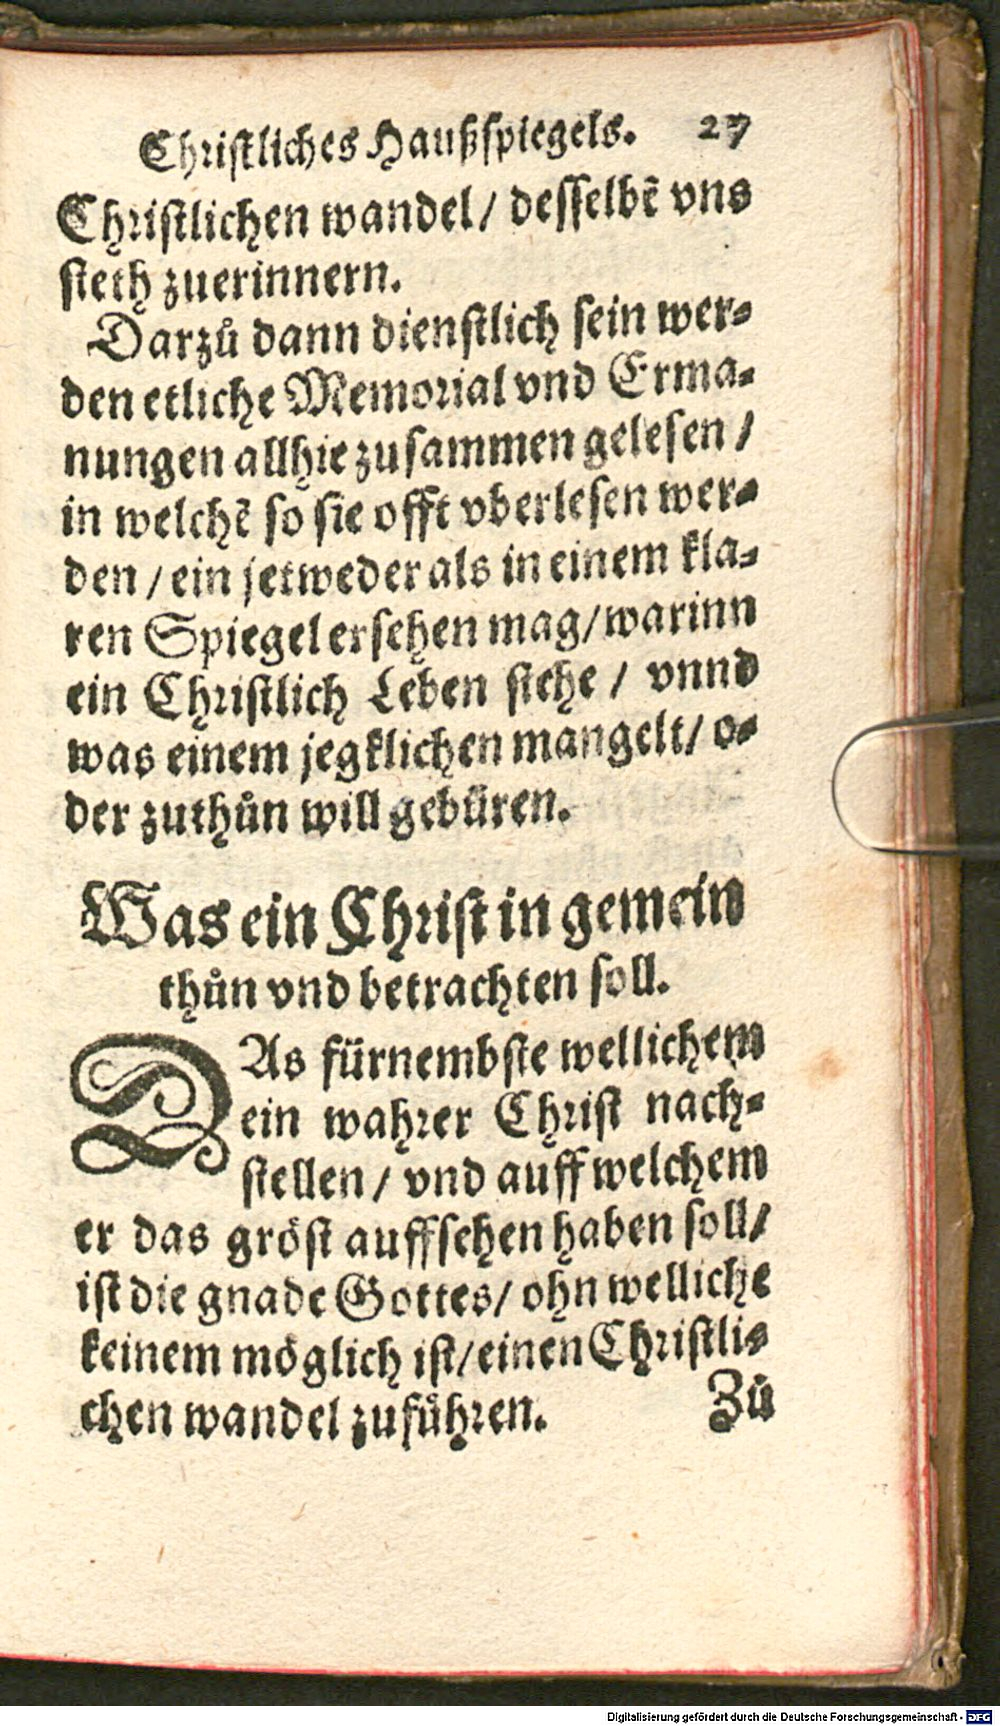 Christliches Haußspiegels. 27
Christlichen wandel/ desselbẽ vns
steth zuerinnern.
Darzů dann dienstlich sein wer-
den etliche Memorial vnd Erma-
nungen allhie zusammen gelesen /
in welchẽ so sie offt vberlesen wer-
den / ein jetweder als in einem kla-
ren Spiegel ersehen mag/ warinn
ein Christlich Leben stehe / vnnd
was einem jegklichen mangelt/ o-
der zuthůn will gebüren.
Was ein Christ in gemein
thůn vnd betrachten soll.
DAs fürnembste wellichem
ein wahrer Christ nach-
stellen / vnd auff welchem
er das gröst auffsehen haben soll/
ist die gnade Gottes/ ohn welliche
keinem möglich ist/ einen Christli-
chen wandel zuführen.
Zů
Digitalisierung gefördert durch die Deutsche Forschungsgemeinschaft - DFG